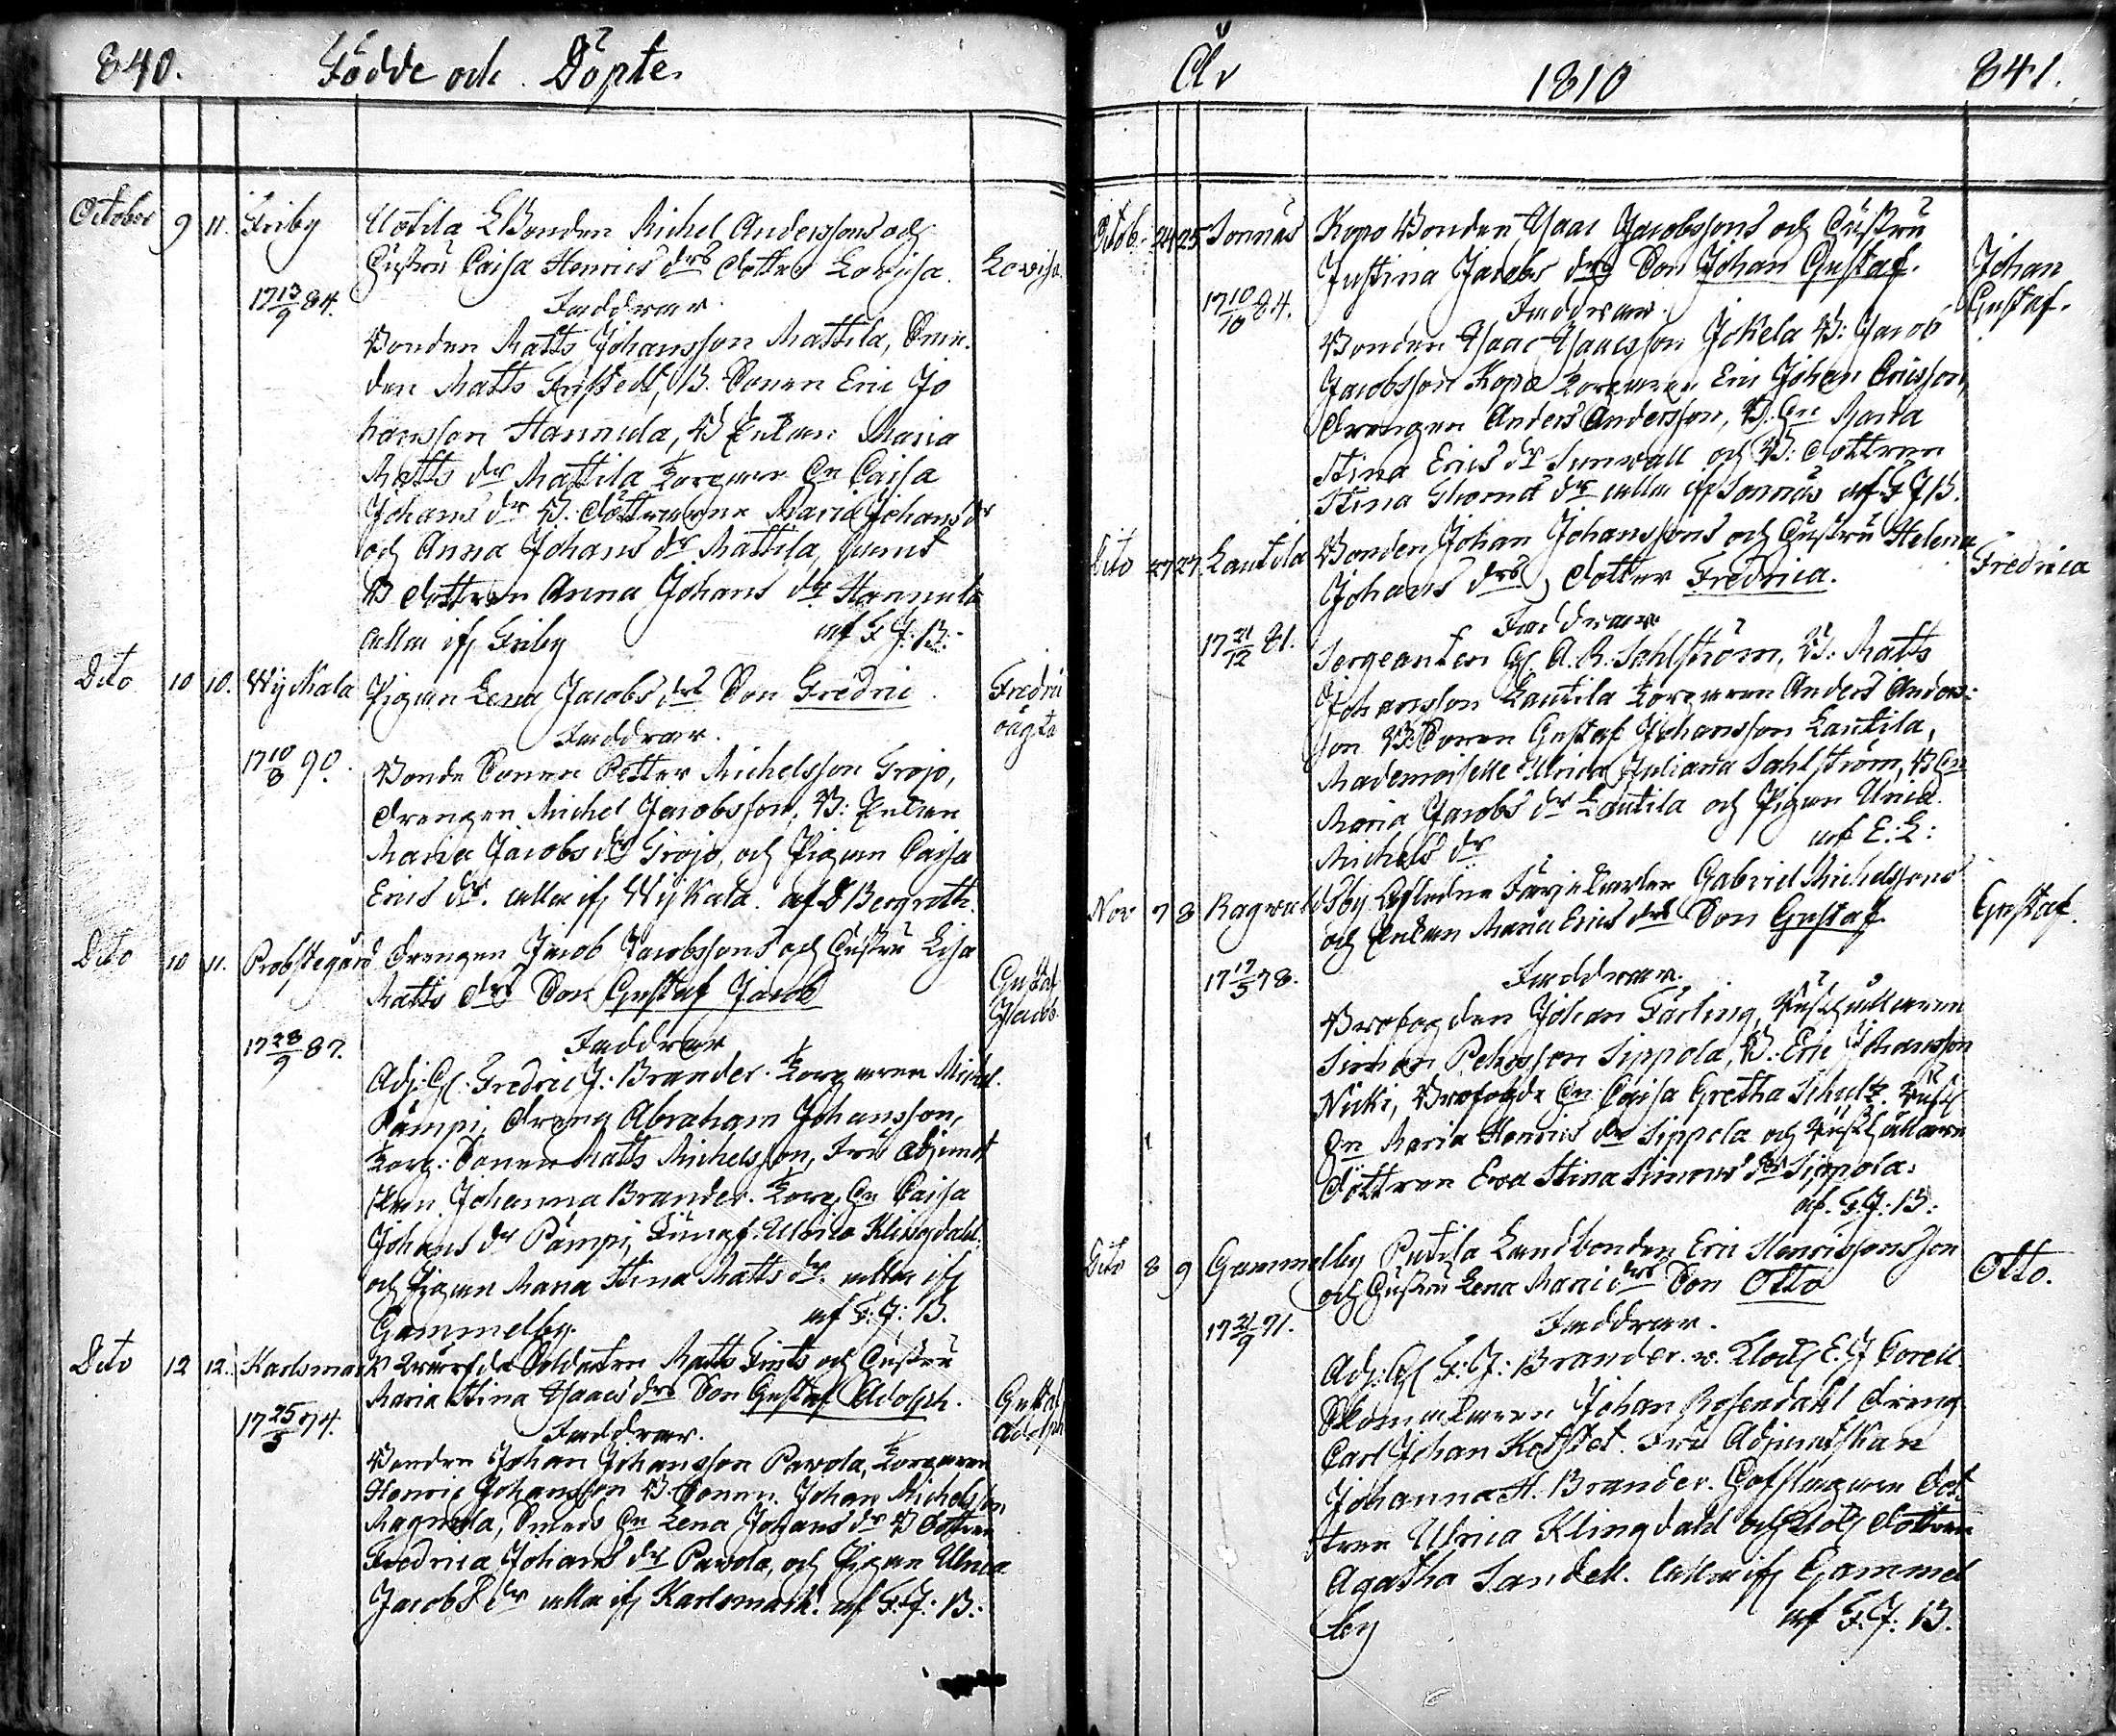 840. Födde och Döpte
October 9 11. Friby Uotila LBonden Michel Anderssons och
Hustru Caisa Henrics drs dotter Lovisa. Lovisa
17 13/9 84. Faddrar.
Bonden Matts Johansson Mattila,
den Matts B. Sonen Eric Jo
hansson Hannula, B Enkan Maria
Matts dr Mattila Torparen Caisa
Johans dr B. Döttrarne Maria Johans dr
och Anna Johans dr Mattila, samt
B dottren Anna Johans dr Hannula
alla ifr Friby af F J: B:
Dito 10 10. Wijkala Pigan Lena Jacobs drs Son Fredric Fredric
Faddrar. oägta
17 10/8 90. Bonde Sonen Petter Michelsson Grojo,
drengen Michel Jacobsson, B: Enkan
Maria Jacobs dr Grojo, och Pigan Caisa
Erics dr. alla ifr Wijkala. af D Bergroth.
Dito 10 11. Probstegård drengen Jacob Jacobssons och Hustru Lisa
Matts drs Son Gustaf Jacob Gustaf Jacob
17 28/9 87. Faddrar
Adj: H: Fredric J: Brander. Torparen Michel
Pampi, dreng Abraham Johansson,
Torp: Sonen Matts Michelsson, Fru Adjunct
skan Johanna Brander. Torp. Caisa
Johans dr Pampi, Jungf. Ulrica Klingdahl.
och Pigan Maria Stina Matts dr. alla ifr
Gammelby. af F: J: B.
Dito 12 12. Karlsmark Soldaten Matts och Hustru
Maria Stina Isaacs drs Son Gustaf Adolph. Gustaf
17 25/3 74. Faddrar. Adolph
Bonden Johan Johansson Pavola, Torparen
Henric Johansson B. Sonen Johan Michelsson
Magnula, Smeds Lena Johans dr B dottren
Fredrica Johans dr Pavola, och Pigan Ulrica
Jacobs dr alla ifr Karlsmark. af F: J: B:
År 1810 841.
Octob. 24 25 Sonnäs Kopo Bonden Isaac Jacobssons och Hustru
Justina Jacobs drs Son Johan Gustaf. Johan
17 10/10 84. Faddrar. Gustaf.
Bonden Isaac Isaacsson Jokela B: Jacob
Jacobsson Kopo Torparen Eric Johan Ericsson,
drengen Anders Andersson, B. Maria
Stina Erics dr Sunwall och B: dottren
Stina Thoms dr alla ifr Sonnäs af F J B.
Dito 27 27 Lautila Bonden Johan Johanssons och Hustru Helena
Johans drs dotter Fredrica. Fredrica
17 21/12 81. Faddrar
Sergeanten H. A. R. Sahlström, B: Matts
Johansson Lautila Torparen Anders Anders-
son B: Sonen Gustaf Johansson Lautila,
Mademoiselle Ulrica Juliana Sahlström, B
Maria Jacobs dr Lautila och Pigan Ulrica
Michels dr af E: L:
Nov 7 8 Ragwaldsby Aflidne Färjekarlen Gabriel Michelssons
och Enkan Maria Erics drs Son Gustaf Gustaf.
17 17/3 78. Faddrar.
Brofogden Johan Färling, Rusthållaren
Simon Pehrsson Sippola, B. Eric Johansson
Nicki, Brofogde Caisa Gretha Schultz. Rusth
Maria Henrics dr Sippola och Rusthållare
dottren Eva Stina Simons dr Sippola.
af. F: J: B:
Dito 8 9 Gammelby Putila Landbonden Eric Henricssons
och Hustru Lena Marie drs Son Otto Otto.
17 21/9 71. Faddrar.
Adj: H F: J: Brander. v. Klock E. J Corell
Skomakaren Johan Rosendahl dreng
Carl Johan Fru Adjunctskan
Johanna H. Brander. Hofslagaren Dot
tren Ulrica Klingdahl och Klock dottren
Agatha Sandell. alla ifr Gammel
by af F: J: B.